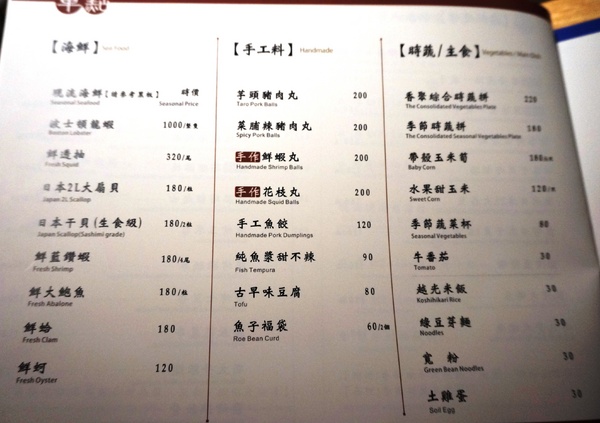 單點
【海鮮】 Sea Food
現流海鮮【請參考黑板】 時價
Seasonal Seafood Seasonal Price
波士頓龍蝦 1000/整隻
Boston Lobster
鮮透抽 320/尾
Fresh Squid
日本2L大扇貝 180/粒
Japan 2L Scallop
日本干貝(生食級) 180/2粒
Japan Scallop(Sashimi grade)
鮮藍鑽蝦 180/4尾
Fresh Shrimp
鮮大鮑魚 180/粒
Fresh Abalone
鮮蛤 180
Fresh Clam
鮮蚵 120
Fresh Oyster
【手工料】 Handmade
芋頭豬肉丸 200
Taro Pork Balls
菜脯辣豬肉丸 200
Spicy Pork Balls
手作鮮蝦丸 200
Handmade Shrimp Balls
手作花枝丸 200
Handmade Squid Balls
手工魚餃 120
Handmade Pork Dumplings
純魚漿甜不辣 90
Fish Tempura
古早味豆腐 80
Tofu
魚子福袋 60/2個
Roe Bean Curd
【時蔬/主食】 Vegetables / Main Dish
香聚綜合時蔬拼 220
The Consolidated Vegetables Plate
季節時蔬拼 180
The Consolidated Seasonal Vegetables Plate
帶殼玉米筍 180
Baby Corn
水果甜玉米 120
Sweet Corn
季節蔬菜杯 80
Seasonal Vegetables
牛番茄 30
Tomato
越光米飯 30
Koshihikari Rice
綠豆芽麵 30
Noodles
寬粉 30
Green Bean Noodles
土雞蛋 30
Soil Egg